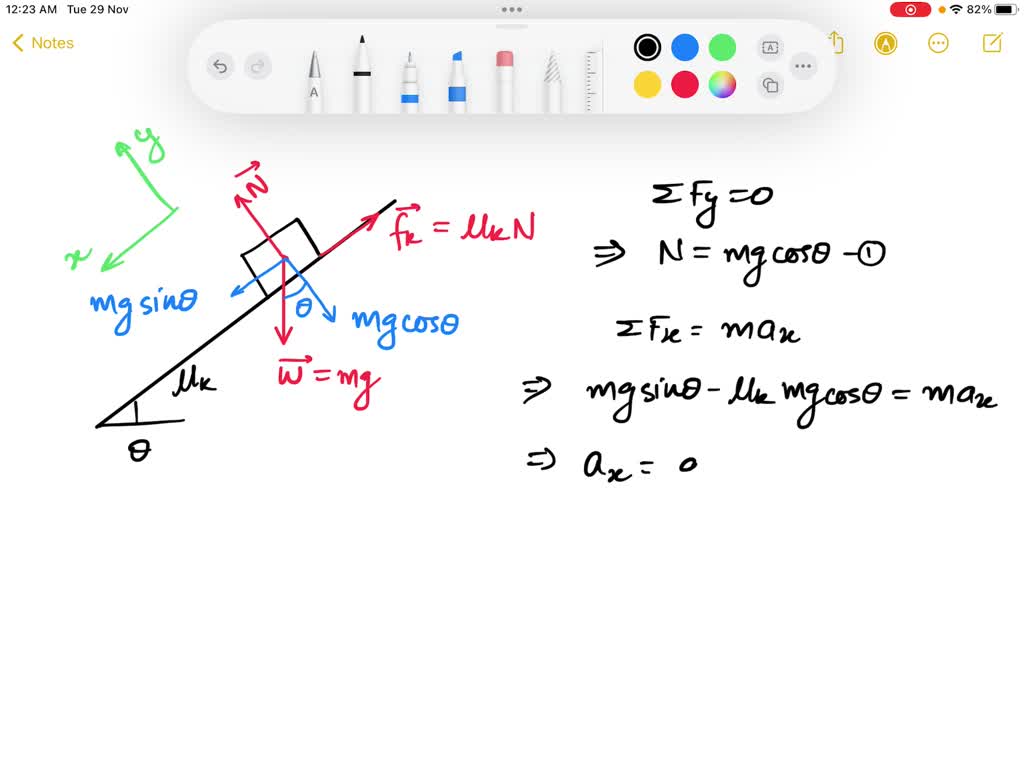 12:23 AM Tue 29 Nov
82%
Notes
A
A
A
y
x
N
f⃗k = μkN
mg sinθ
θ
mg cosθ
w⃗ = mg
μk
θ
ΣFy = 0
⇒ N = mg cosθ - ①
ΣFx = max
⇒ mg sinθ - μk mg cosθ = max
⇒ ax = 0